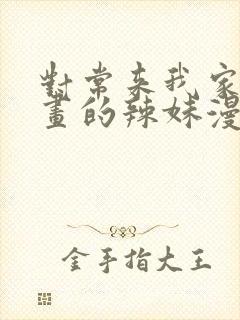 對常來我家
畫的辣妹漫
金手指大王